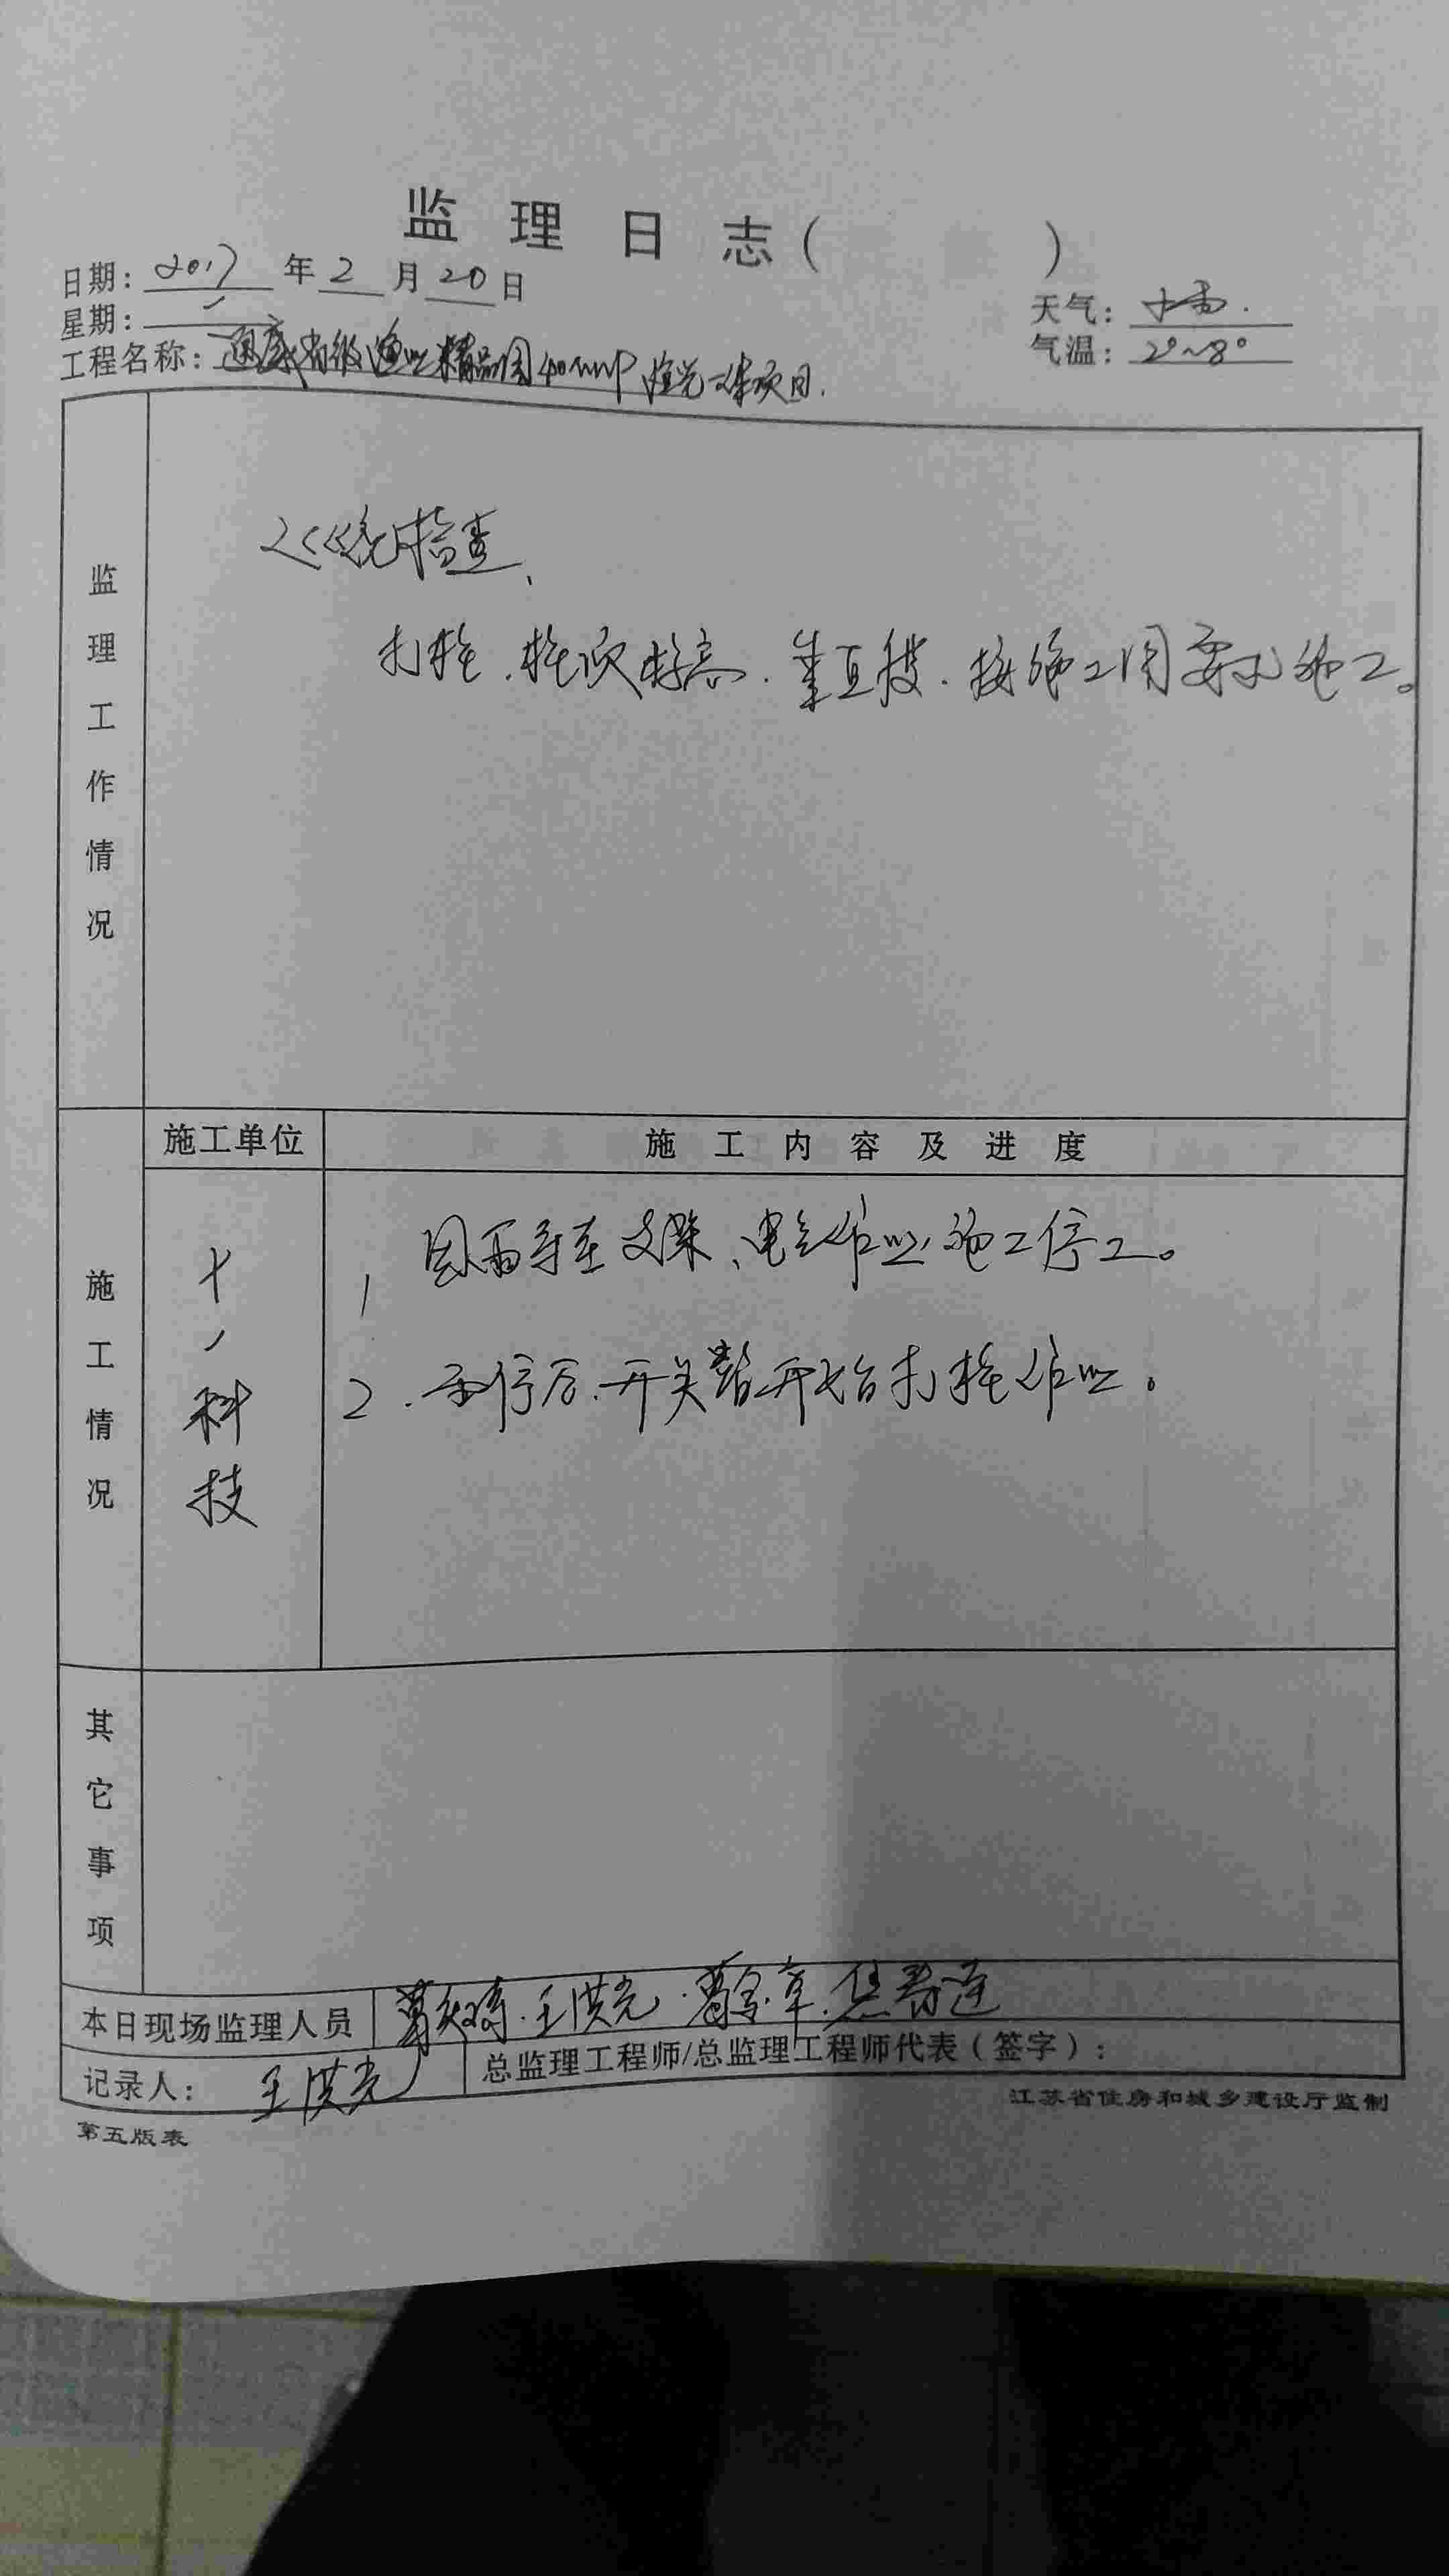 监理日志（ ）
日期：2017年2月20日
星期：一
天气：中雨.
工程名称：通威省级渔业精品园40MWP渔光一体项目.
气温：2°~8°
监理工作情况
巡视检查、
打桩.桩顶标高.垂直度.按施工图要求施工。
施工单位
施工内容及进度
施工情况
十一科技
1 因雨导至支架、电气作业施工停工。
2.雨停后.开关站开始打桩作业。
其它事项
本日现场监理人员
王洪亮.
记录人：王洪亮
总监理工程师/总监理工程师代表（签字）：
江苏省住房和城乡建设厅监制
第五版表